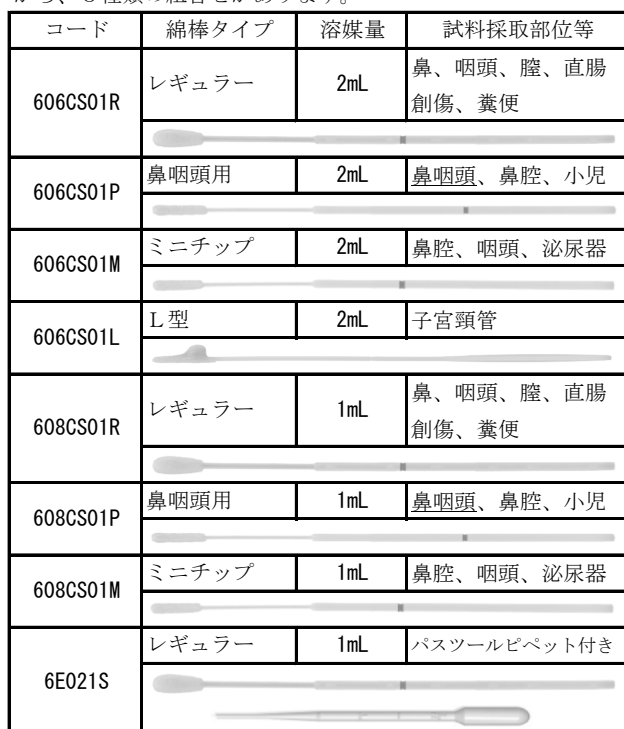 コード 綿棒タイプ 溶媒量 試料採取部位等
606CS01R レギュラー 2mL 鼻、咽頭、膣、直腸
創傷、糞便
606CS01P 鼻咽頭用 2mL 鼻咽頭、鼻腔、小児
606CS01M ミニチップ 2mL 鼻腔、咽頭、泌尿器
606CS01L L型 2mL 子宮頸管
608CS01R レギュラー 1mL 鼻、咽頭、膣、直腸
創傷、糞便
608CS01P 鼻咽頭用 1mL 鼻咽頭、鼻腔、小児
608CS01M ミニチップ 1mL 鼻腔、咽頭、泌尿器
6E021S レギュラー 1mL パスツールピペット付き